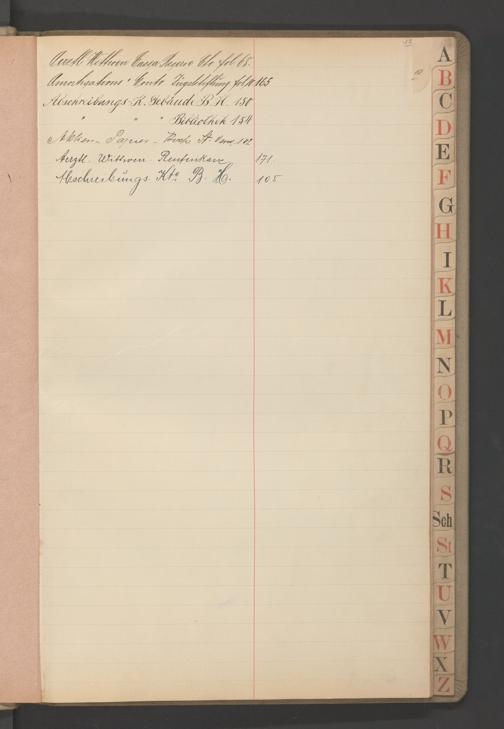 Aerztl. Wittwen Cassa Reserve Cto fol. 65.
Amortisations' Conto fol. 165
Abschreibungs-K. Gebäude B. H. 150
" " " Bibliothek 154
Aktien-
Aerztl. Wittwen- Rentenkasse 171.
Abschreibungs Kto B. H. 105
13
A
B
C
D
E
F
G
H
I
K
L
M
N
O
P
Q
R
S
Sch
St
T
U
V
W
X
Z